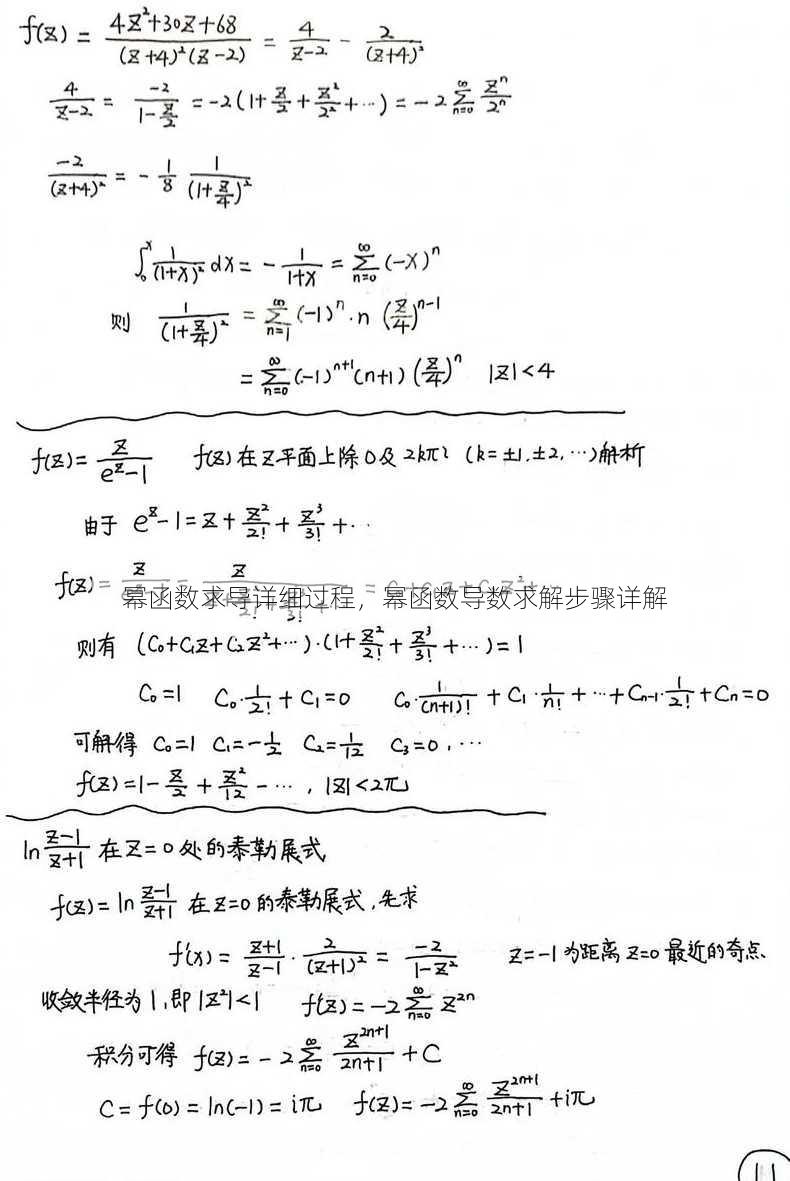 f(z) = (4z²+30z+68)/((z+4)²(z-2)) = 4/(z-2) - 2/(z+4)²
4/(z-2) = -2/(1-z/2) = -2(1+z/2+z²/2²+⋯) = -2 ∑_{n=0}^{∞} zⁿ/2ⁿ
-2/(z+4)² = -1/8 1/(1+z/4)²
∫₀ˣ 1/(1+x)² dx = -1/(1+x) = ∑_{n=0}^{∞} (-x)ⁿ
则 1/(1+z/4)² = ∑_{n=1}^{∞} (-1)ⁿ·n (z/4)ⁿ⁻¹
= ∑_{n=0}^{∞} (-1)ⁿ⁺¹(n+1) (z/4)ⁿ |z|<4
f(z) = z/(e^z-1) f(z)在z平面上除0及2kπi (k=±1,±2,⋯)解析
由于 e^z-1 = z+z²/2!+z³/3!+⋯
f(z) = z
幂函数求导详细过程，幂函数导数求解步骤详解
则有 (C₀+C₁z+C₂z²+⋯)·(1+z²/2!+z³/3!+⋯)=1
C₀=1 C₀·1/2!+C₁=0 C₀·1/(n+1)!+C₁·1/n!+⋯+Cₙ₋₁·1/2!+Cₙ=0
可解得 C₀=1 C₁=-1/2 C₂=1/12 C₃=0,⋯
f(z)=1-z/2+z²/12-⋯, |z|<2π
ln (z-1)/(z+1) 在z=0处的泰勒展式
f(z)=ln (z-1)/(z+1) 在z=0的泰勒展式,先求
f'(x) = (z+1)/(z-1)·2/(z+1)² = -2/(1-z²) z=-1为距离z=0最近的奇点、
收敛半径为1,即|z²|<1 f'(z)=-2 ∑_{n=0}^{∞} z²ⁿ
积分可得 f(z)=-2 ∑_{n=0}^{∞} z²ⁿ⁺¹/(2n+1) + C
C=f(0)=ln(-1)=iπ f(z)=-2 ∑_{n=0}^{∞} z²ⁿ⁺¹/(2n+1) +iπ
11